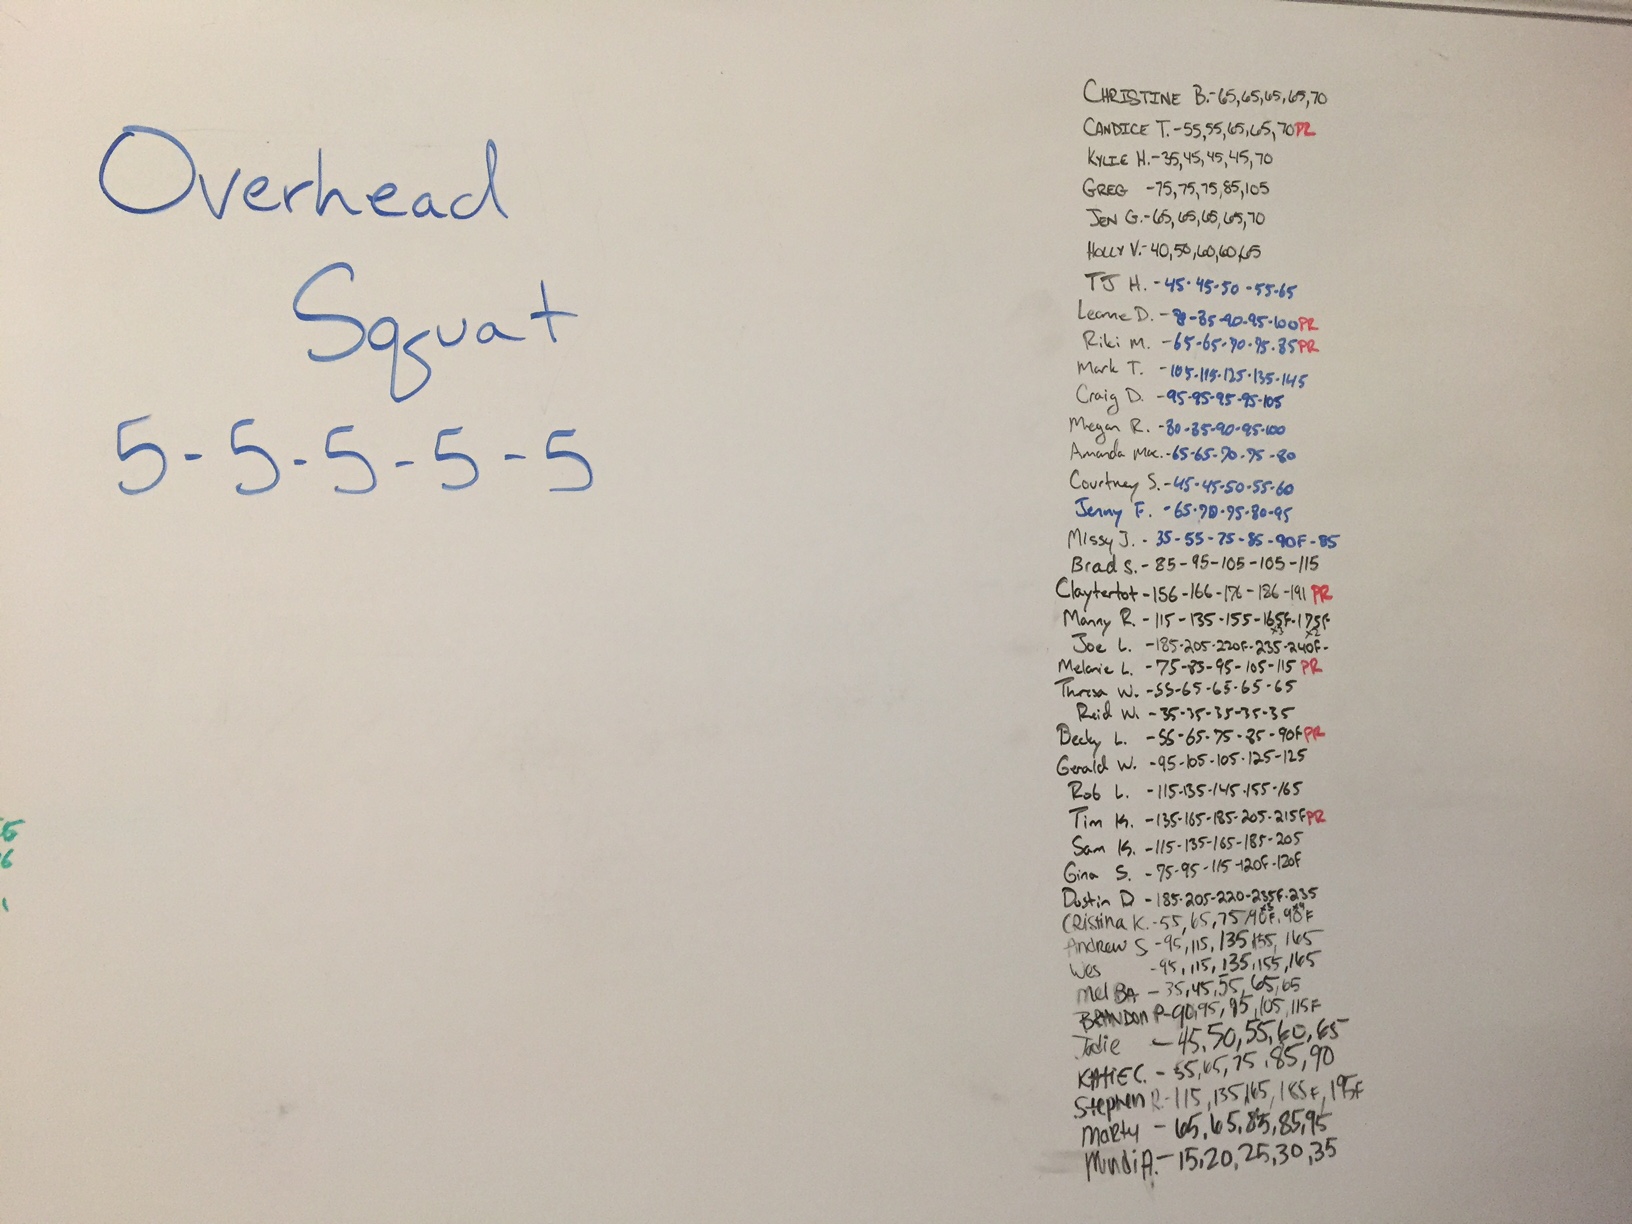 Overhead
Squat
5-5-5-5-5
CHRISTINE B.-65,65,65,65,70
CANDICE T.-55,55,65,65,70 PR
KYLIE H.-35,45,45,45,70
GREG -75,75,75,85,105
JEN G.-65,65,65,65,70
HOLLY V.-40,50,60,60,65
TJ H. -45-45-50-55-65
Leanne D. - 85-90-95-100 PR
Riki M. -65-65-70-75-85 PR
Mark T. -105-115-125-135-145
Craig D. -95-95-95-95-105
Megan R. -80-85-90-95-100
Amanda Mac.-65-65-70-75-80
Courtney S.-45-45-50-55-60
Jenny F. -65-70-75-80-95
Missy J. - 35-55-75-85-90F-85
Brad S.-85-95-105-105-115
Claytertot-156-166-176-186-191 PR
Manny R. -115-135-155-165F-175F
x3 x2
Joe L. -185-205-220F-235-240F-
Melanie L. -75-85-95-105-115 PR
Thresa W. -55-65-65-65-65
Reid W. -35-35-35-35-35
Becky L. -55-65-75-85-90F PR
Gerald W. -95-105-105-125-125
Rob L. -115-135-145-155-165
Tim K. -135-165-185-205-215F PR
Sam K. -115-135-165-185-205
Gina S. -75-95-115-120F-120F
Dustin D -185-205-220-235F-235
CRistina K.-55,65,75,90F,90F
Andrew S -95,115,135,155,165
Wes -95,115,135,155,165
Mel BA -35,45,55,65,65
BRANDON P-90,95,95,105,115F
Jodie -45,50,55,60,65
KATIE C. -55,65,75,85,90
Stephen R-115,135,165,185F,195F
Marty -65,65,85,85,95
Mindi A.-15,20,25,30,35